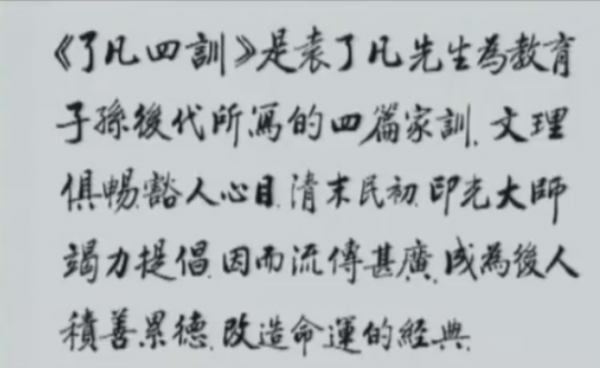 《了凡四訓》是袁了凡先生為教育
子孫後代所寫的四篇家訓.文理
俱暢.豁人心目.清末民初.印光大師
竭力提倡.因而流傳甚廣.成為後人
積善累德.改造命運的經典.